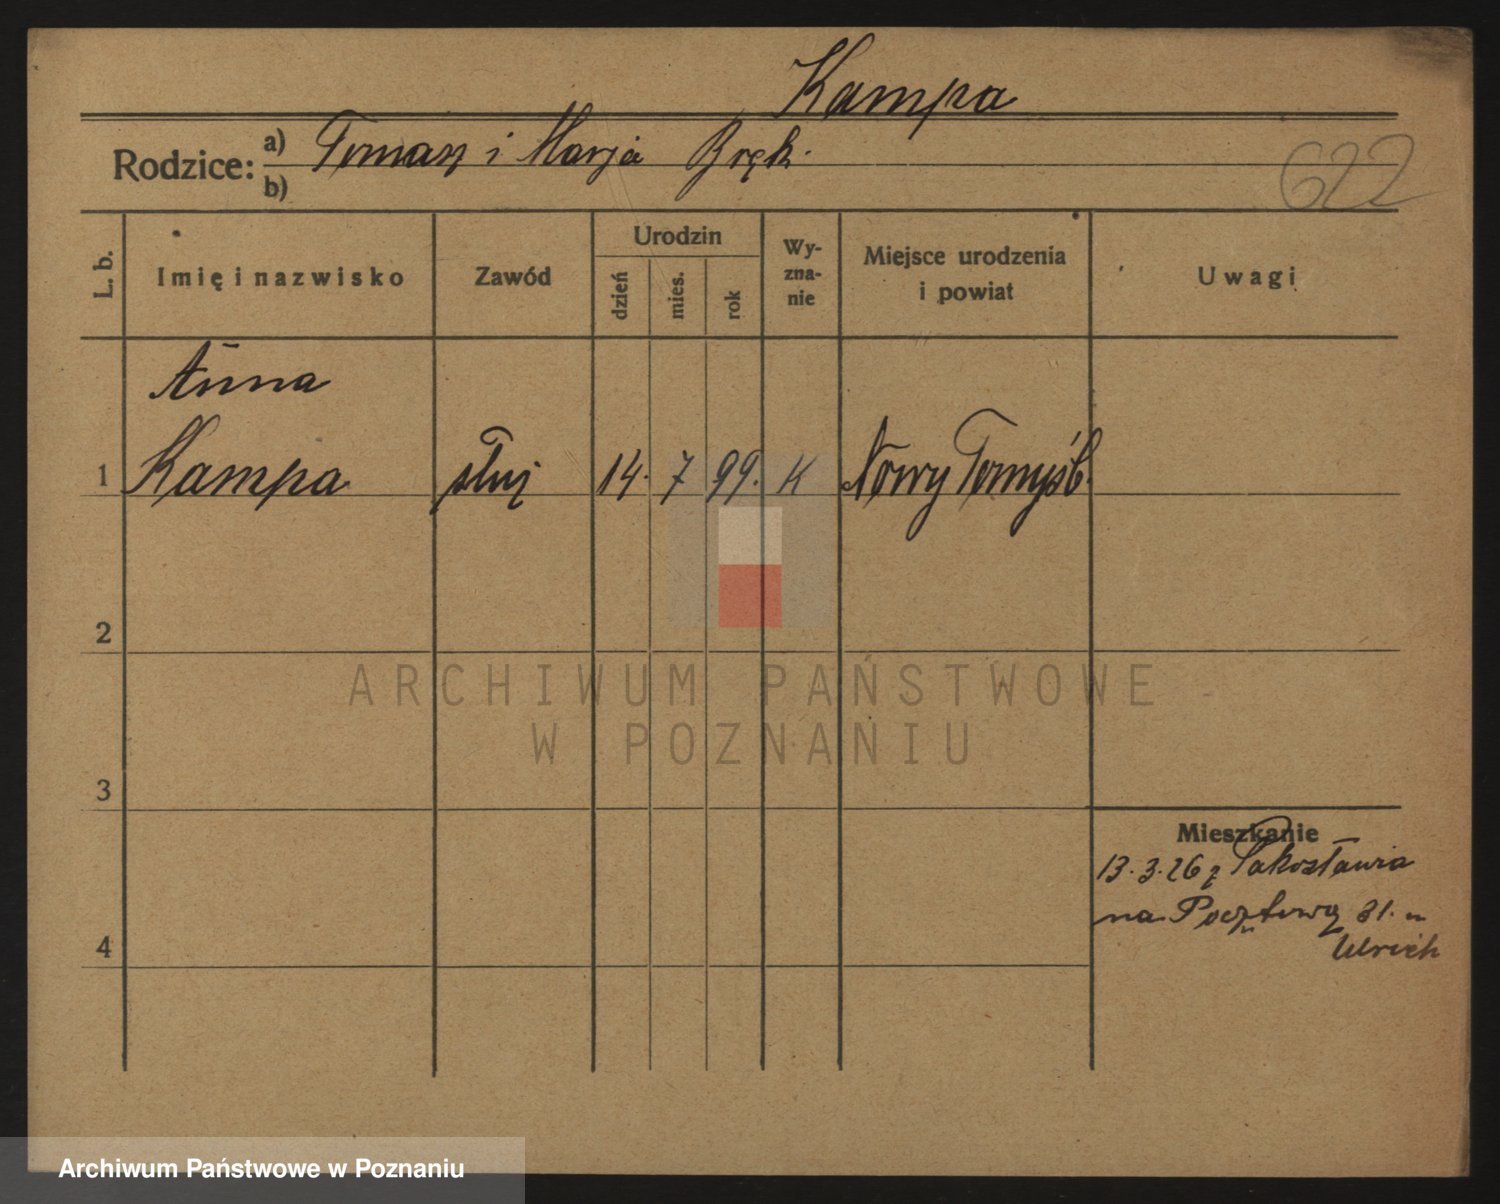 Kampa
Rodzice: a) Tomasz i Marja Bręk.
b)
622
L. b.
Imię i nazwisko
Zawód
Urodzin
dzień
mies.
rok
Wy-
zna-
nie
Miejsce urodzenia
i powiat
Uwagi
Anna
1 Kampa służ 14. 7 99. K Nowy Tomyśl.
2
ARCHIWUM PAŃSTWOWE
W POZNANIU
3
Mieszkanie
13.3.26 z Pakosławia
na Pocztową 31. u
4
Ulrich
Archiwum Państwowe w Poznaniu